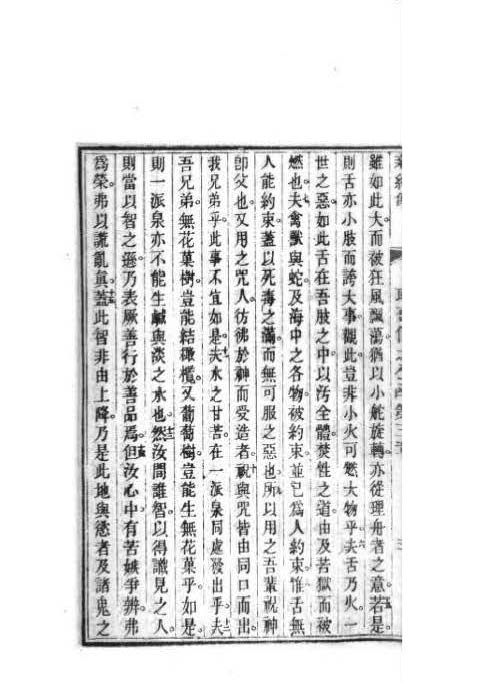 雖如此大而被狂風飄蕩猶以小舵旋轉亦從理舟者之意若是
則舌亦小肢而誇大事觀此豈非小火可燃大物乎夫舌乃火一
世之惡如此舌在吾肢之中以污全體焚性之道由及若獄而被
燃也夫禽獸與蛇及海中之各物被約束並已為人約束惟舌無
人能約束蓋以死毒之滿而無可服之惡也所以用之吾輩祝神
卽父也又用之咒人彷彿於神而受造者祝與咒皆由同口而出
我兄弟乎此事不宜如是夫水之甘苦在一派泉同處發出乎夫
吾兄弟無花菓樹豈能結橄欖又葡萄樹豈能生無花菓乎如是
則一派泉亦不能生鹹與淡之水也然汝間誰智以得識見之人
則當以智之遜乃表厥善行於善品焉但汝心中有苦嫉爭辨弗
為榮弗以謊亂眞蓋此智非由上降乃是此地與慾者及諸鬼之